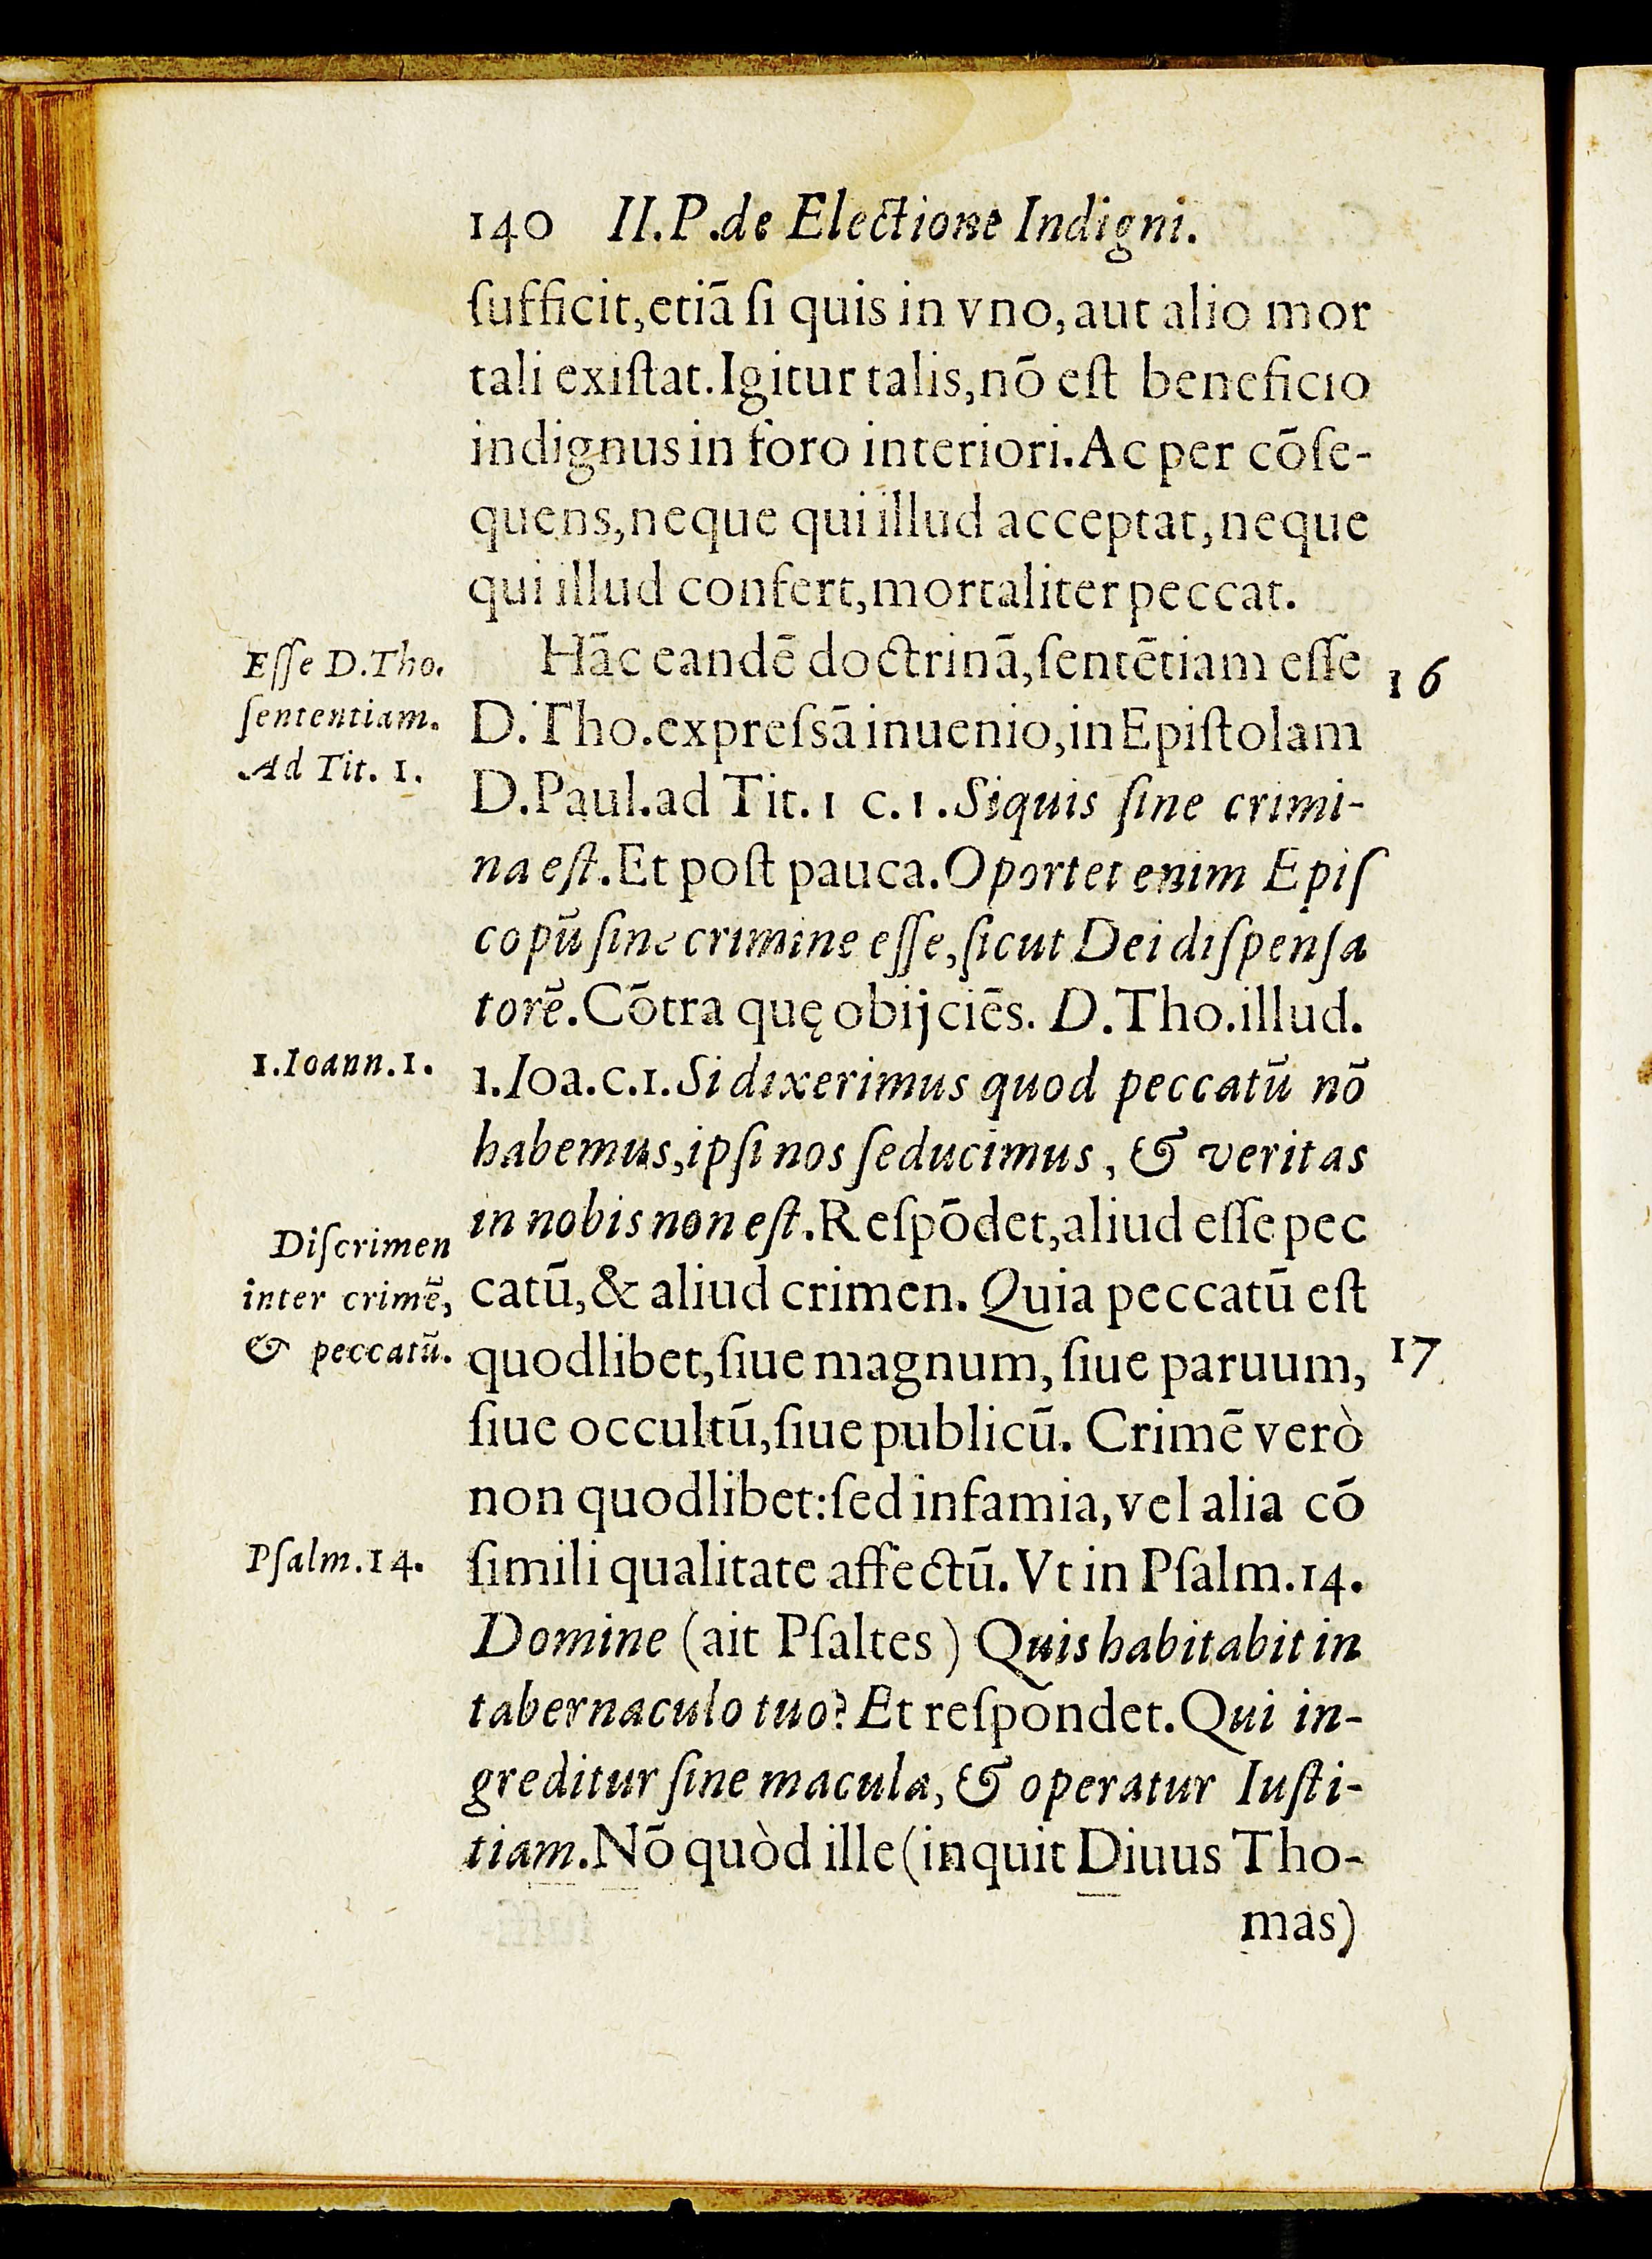 140 II.P.de Electione Indigni.
ſufficit,etiā ſi quis in vno, aut alio mor
tali exiſtat.Igitur talis,nō eſt beneficio
indignus in foro interiori.Ac per cōſe-
quens,neque qui illud acceptat, neque
qui illud confert,mortaliter peccat.
Hāc eandē doctrinā,ſentētiam eſſe
D.Tho.expreſsā inuenio,in Epiſtolam
D.Paul.ad Tit.1 c.1.Siquis ſine crimi-
na eſt.Et poſt pauca.Oportet enim Epiſ
copū ſine crimine eſſe,ſicut Dei diſpenſa
torē.Cōtra quę obijciēs. D.Tho.illud.
1.Ioa.c.1.Si dixerimus quod peccatū nō
habemus,ipſi nos ſeducimus, & veritas
in nobis non eſt.Reſpōdet,aliud eſſe pec
catū,& aliud crimen. Quia peccatū eſt
quodlibet,ſiue magnum, ſiue paruum,
ſiue occultū,ſiue publicū. Crimē verò
non quodlibet:ſed infamia,vel alia cō
ſimili qualitate affectū.Vt in Pſalm.14.
Domine (ait Pſaltes) Quis habitabit in
tabernaculo tuo? Et reſpondet.Qui in-
greditur ſine macula, & operatur Iuſti-
tiam.Nō quòd ille (inquit Diuus Tho-
mas)
Eſſe D.Tho.
ſententiam.
Ad Tit. 1.
1.Ioann.1.
Diſcrimen
inter crimē,
& peccatū.
Pſalm.14.
16
17